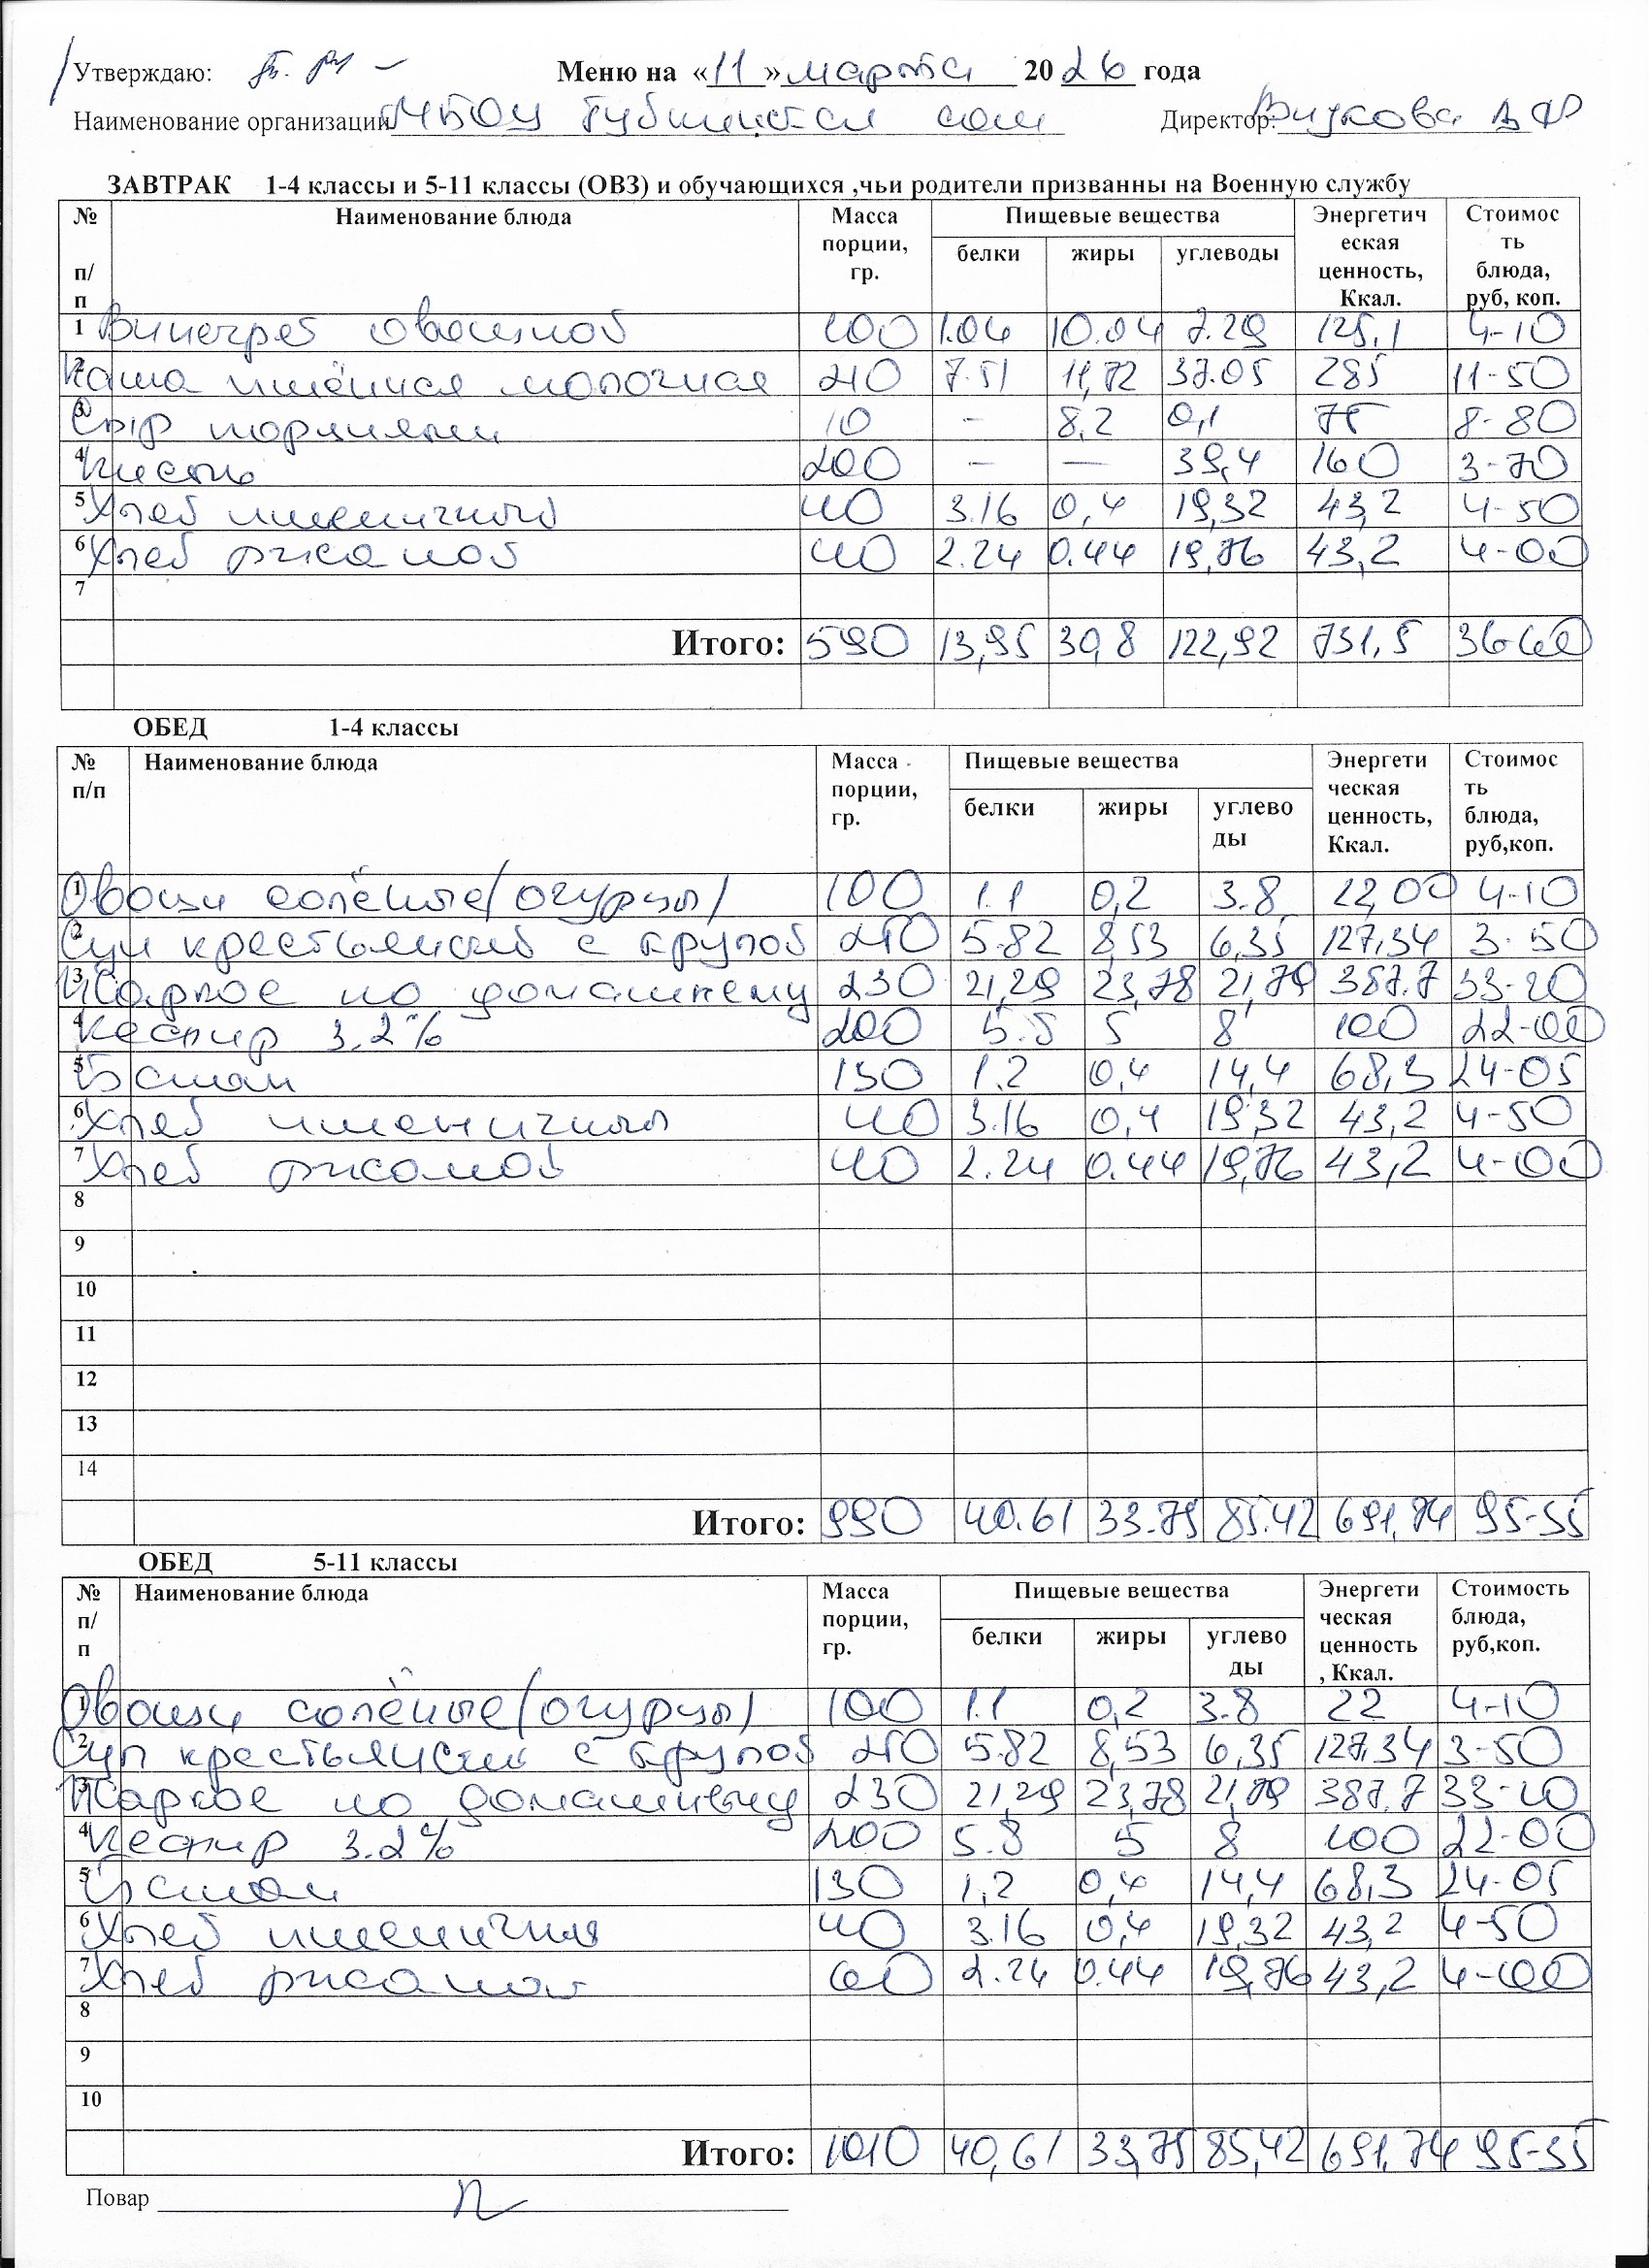 Утверждаю: Меню на «11» марта 2026 года
Наименование организации МБОУ Директор:
ЗАВТРАК 1-4 классы и 5-11 классы (ОВЗ) и обучающихся ,чьи родители призванны на Военную службу
№ п/п Наименование блюда Масса порции, гр. Пищевые вещества Энергетическая ценность, Ккал. Стоимость блюда, руб, коп.
белки жиры углеводы
1 Винегрет овощной 100 1.04 10.04 7.29 125,1 4-10
2 Каша пшённая молочная 210 7.51 11,72 37.05 285 11-50
3 Сыр порциями 10 - 8,2 0,1 75 8-80
4 Кисель 200 - — 39,4 160 3-70
5 Хлеб пшеничный 40 3.16 0,4 19,32 43,2 4-50
6 Хлеб ржаной 40 2.24 0.44 19,76 43,2 4-00
7
Итого: 590 13,95 30,8 122,92 731,5 36-60
ОБЕД 1-4 классы
№ п/п Наименование блюда Масса порции, гр. Пищевые вещества Энергетическая ценность, Ккал. Стоимость блюда, руб,коп.
белки жиры углеводы
1 Овощи солёные (огурцы) 100 1.1 0,2 3.8 22,00 4-10
2 Суп крестьянский с крупой 210 5.82 8,53 6,35 127,34 3-50
3 Жаркое по домашнему 230 21,29 23,78 21,79 387.7 33-20
4 Кефир 3.2% 200 5.5 5 8 100 22-00
5 130 1.2 0,4 14,4 68,3 24-05
6 Хлеб пшеничный 40 3.16 0,4 19,32 43,2 4-50
7 Хлеб ржаной 40 2.24 0.44 19,76 43,2 4-00
8
9
10
11
12
13
14
Итого: 990 40.61 33.75 85.42 691,74 95-35
ОБЕД 5-11 классы
№ п/п Наименование блюда Масса порции, гр. Пищевые вещества Энергетическая ценность, Ккал. Стоимость блюда, руб,коп.
белки жиры углеводы
1 Овощи солёные (огурцы) 100 1.1 0,2 3.8 22 4-10
2 Суп крестьянский с крупой 210 5.82 8,53 6,35 127,34 3-50
3 Жаркое по домашнему 230 21,29 23,78 21,79 387,7 33-20
4 Кефир 3.2% 200 5.8 5 8 100 22-00
5 130 1,2 0,4 14,4 68,3 24-05
6 Хлеб пшеничный 40 3.16 0,4 19,32 43,2 4-50
7 Хлеб ржаной 60 2.24 0.44 19,76 43,2 4-00
8
9
10
Итого: 1010 40,61 33,75 85,42 691,74 95-35
Повар